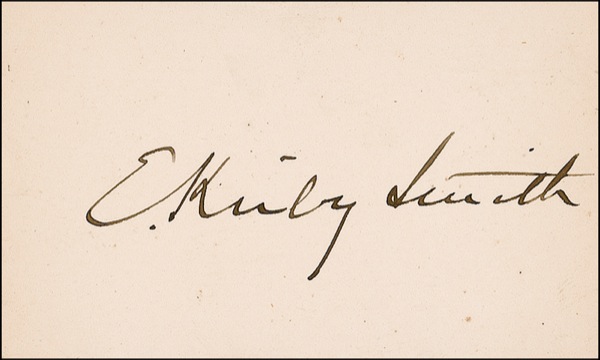 E. Kirby Smith